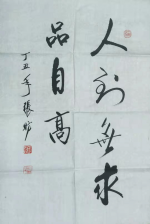 人到無求
品自高
丁丑年 張